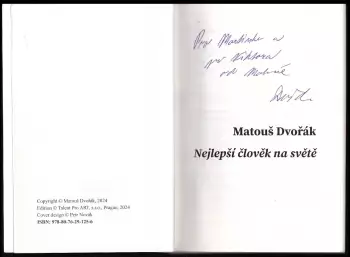 Copyright © Matouš Dvořák, 2024
Edition © Talent Pro ART, s.r.o., Prague, 2024
Cover design © Petr Novák
ISBN: 978-80-76-29-125-6
Pro Markétu a
pro Viktora
od Matouše
Matouš Dvořák
Nejlepší člověk na světě